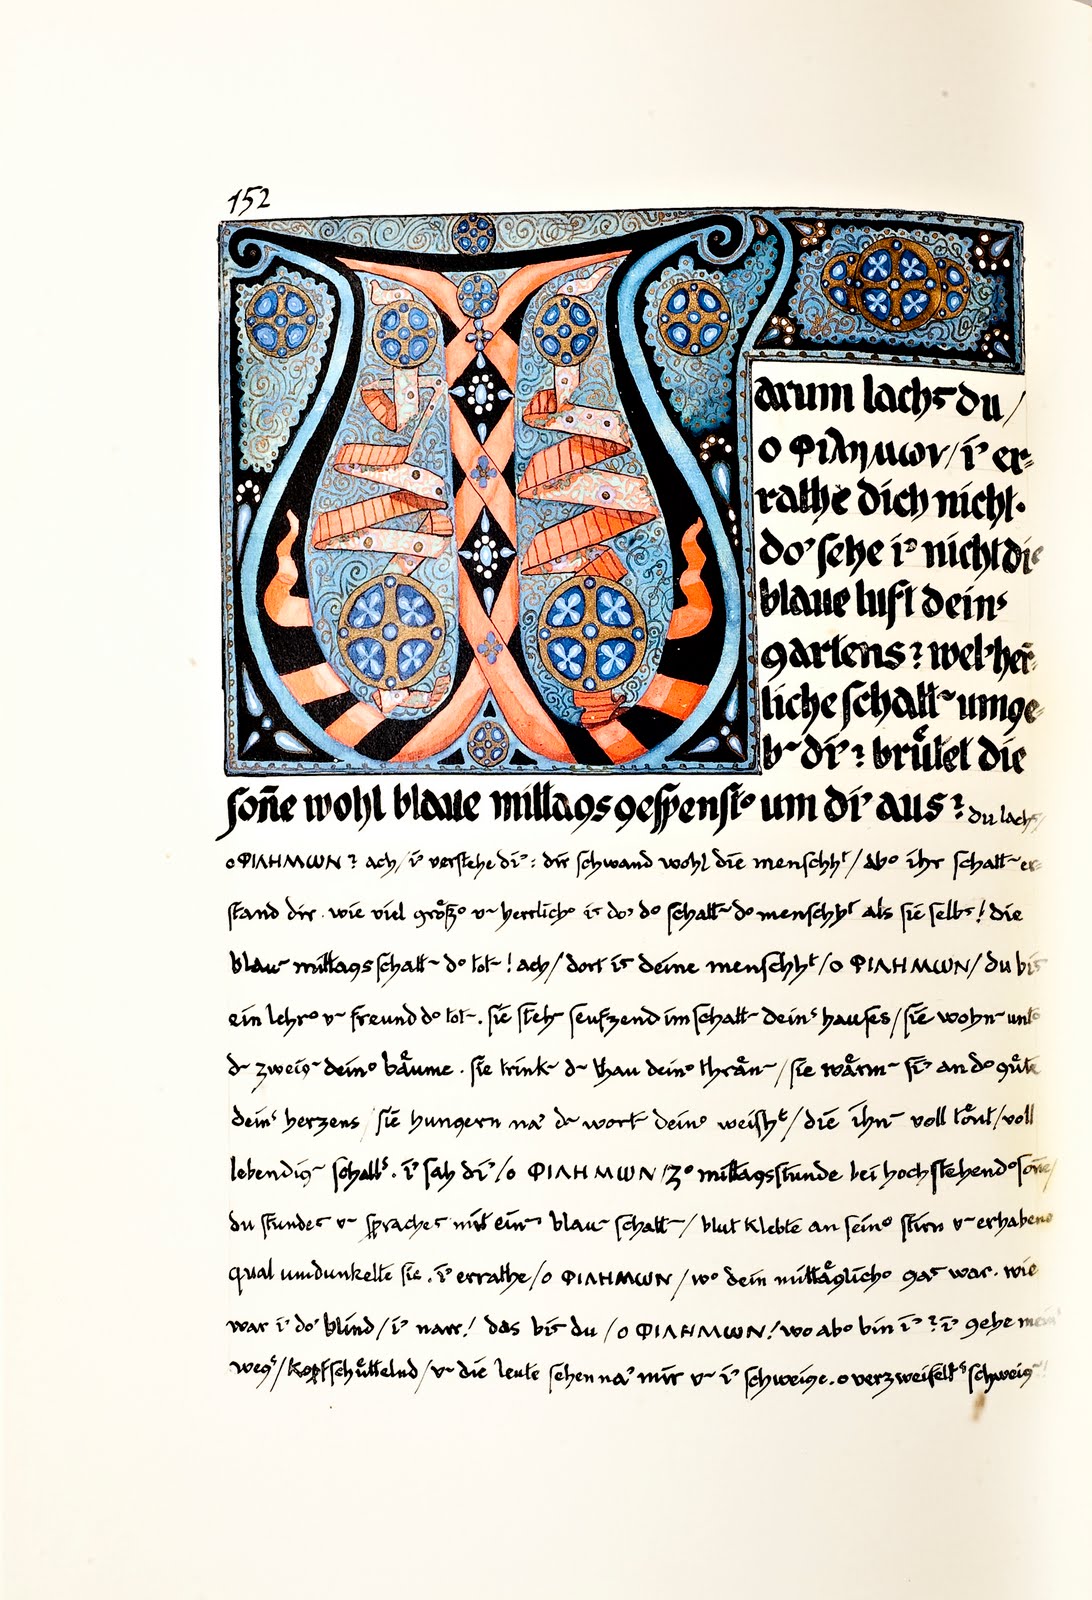 152
W
arum lachst du/
o ΦΙλημων/ i' er=
rathe dich nicht.
do' sehe i' nicht die
blaue luft deins
gartens? welche herr=
liche schatt~ umge=
b~ di'? brütet die
soñe wohl blaue mittagsgespenst' um di' aus? du lachst/
o ΦΙΛΗΜΩΝ? ach/ i' verstehe di': dir schwand wohl die menschht/ ab' ihr schatt~ er=
stand dir. wie viel größ' u~ herrlich' ist do' d' schatt~ d' menschht als sie selbst! die
blau~ mittagsschatt~ d' tot~! ach/ dort ist deine menschht/ o ΦΙΛΗΜΩΝ/ du bist
ein lehr' u~ freund d' tot~. sie steh~ seufzend im schatt~ deins hauses/ sie wohn~ unt'
d~ zweig~ dein' bäume. sie trink~ d~ thau dein' thrän~/ sie wärm~ si' an d' güte
deins herzens/ sie hungern na' d~ wort~ dein' weisht/ die ihn~ voll tönt/ voll
lebendig~ schalls. i' sah di'/ o ΦΙΛΗΜΩΝ/ z' mittagsstunde bei hochstehend' soñe/
du standest u~ sprachest mit ein~ blau~ schatt~/ blut klebte an sein' stirn u~ erhabene
qual umdunkelte sie. i' errathe/ o ΦΙΛΗΜΩΝ/ w' dein mittäglich' gast war. wie
war i' do' blind/ i' narr! das bist du/ o ΦΙΛΗΜΩΝ! wo ab' bin i'? i' gehe mein
wegs/ kopfschüttelnd/ u~ die leute sehen na' mir u~ i' schweige. o verzweifelts schweig~!